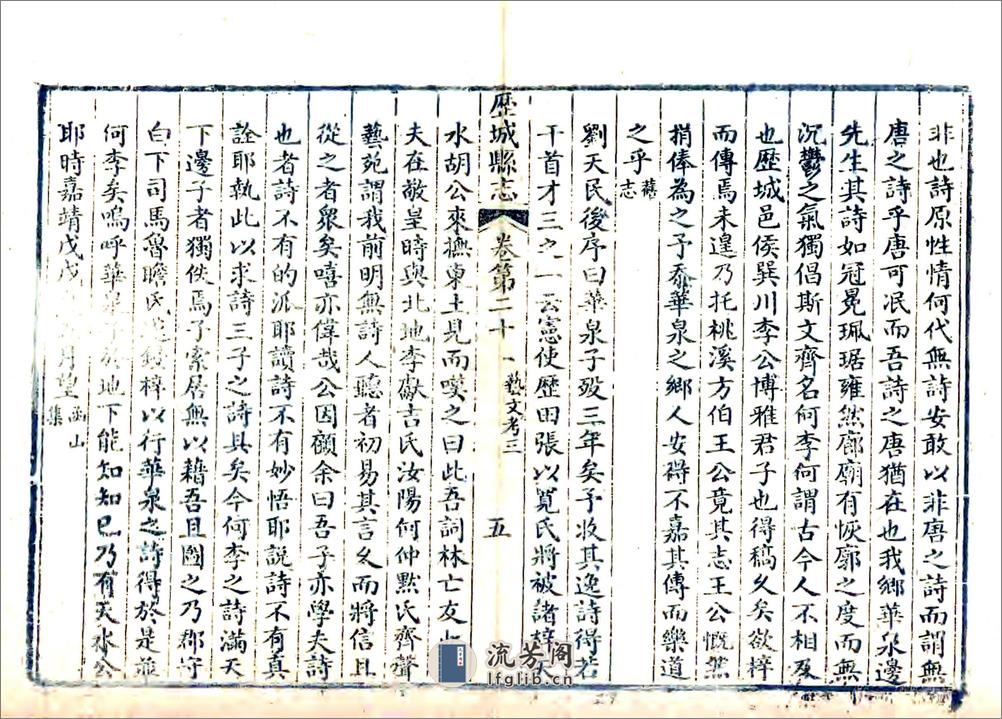 非也詩原性情何代無詩安敢以非唐之詩而謂無
唐之詩乎唐可泯而吾詩之唐猶在也我鄉華泉邊
先生其詩如冠冕珮琚雍然廊廟有恢廓之度而無
沉鬱之氣獨倡斯文齊名何李何謂古今人不相及
也歷城邑侯巽川李公博雅君子也得稿久矣欲梓
而傳焉未遑乃托桃溪方伯王公竟其志王公慨然
捐俸為之予忝華泉之鄉人安得不嘉其傳而樂道
之乎 舊志
劉天民後序曰華泉子歿三年矣予收其逸詩得若
干首才三之一云憲使歷田張以寬氏將被諸梓
水胡公來撫東土見而嘆之曰此吾詞林亡友
夫在敬皇時與北地李獻吉氏汝陽何仲默氏齊聲
藝苑謂我前明無詩人聽者初易其言久而將信且
從之者衆矣嘻亦偉哉公因顧余曰吾子亦學夫詩
也者詩不有的派耶讀詩不有妙悟耶説詩不有真
詮耶執此以求詩三子之詩具矣今何李之詩滿天
下邊子者獨佚焉予索居無以藉吾且圖之乃郡守
白下司馬魯瞻氏鋟梓以行華泉之詩得於是並
何李矣嗚呼華泉子於地下能知知已乃有天水公
耶時嘉靖戊戌月望 函山集
歷城縣志
卷第二十
藝文考三
五
流芳阁
lfglib.cn